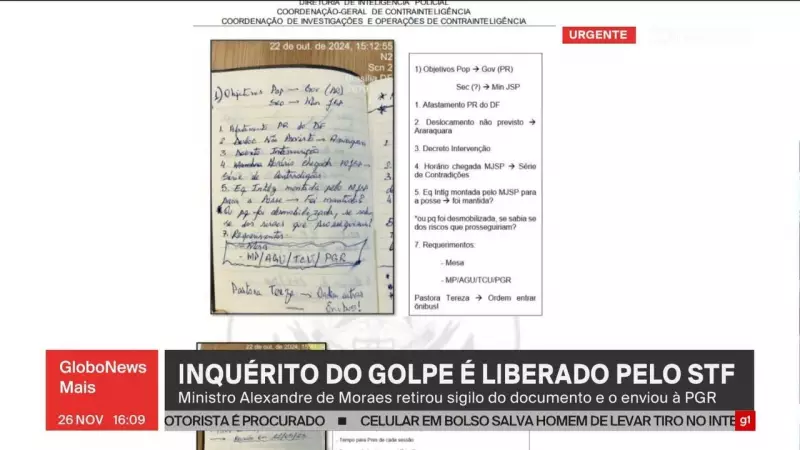 DIRETORIA DE INTELIGÊNCIA POLICIAL
COORDENAÇÃO-GERAL DE CONTRAINTELIGÊNCIA
COORDENAÇÃO DE INVESTIGAÇÕES E OPERAÇÕES DE CONTRAINTELIGÊNCIA
URGENTE
22 de out. de 2024, 15:12:55
N2
Scn 2
DF
1) Objetivos Pop → Gov (PR)
Sec → Min JSP
1. Afastamento PR do DF
2. Desloc Não Previsto → Araraquara
3. Decreto Intervenção
4. Horário chegada MJSP →
Série de Contradições
5. Eq Intlg montada pelo MJSP
para a Posse → Foi mantida?
*Ou pq foi desmobilizada, se sabia
se dos riscos que prosseguiriam?
7. Requerimentos
- Mesa
- MP/AGU/TCU/PGR
Pastora Tereza → Ordem entrar
Ônibus!
1) Objetivos Pop → Gov (PR)
Sec (?) → Min JSP
1. Afastamento PR do DF
2. Deslocamento não previsto →
Araraquara
3. Decreto Intervenção
4. Horário chegada MJSP → Série
de Contradições
5. Eq Intlg montada pelo MJSP para
a posse → foi mantida?
*ou pq foi desmobilizada, se sabia se
dos riscos que prosseguiriam?
7. Requerimentos:
- Mesa
- MP/AGU/TCU/PGR
Pastora Tereza → Ordem entrar
ônibus!
22 de out. de 2024,
Tempo para Pres de cada sessão
GloboNews
Mais
INQUÉRITO DO GOLPE É LIBERADO PELO STF
Ministro Alexandre de Moraes retirou sigilo do documento e o enviou à PGR
26 NOV 16:09
OTORISTA É PROCURADO ■ CELULAR EM BOLSO SALVA HOMEM DE LEVAR TIRO NO INTE
g1